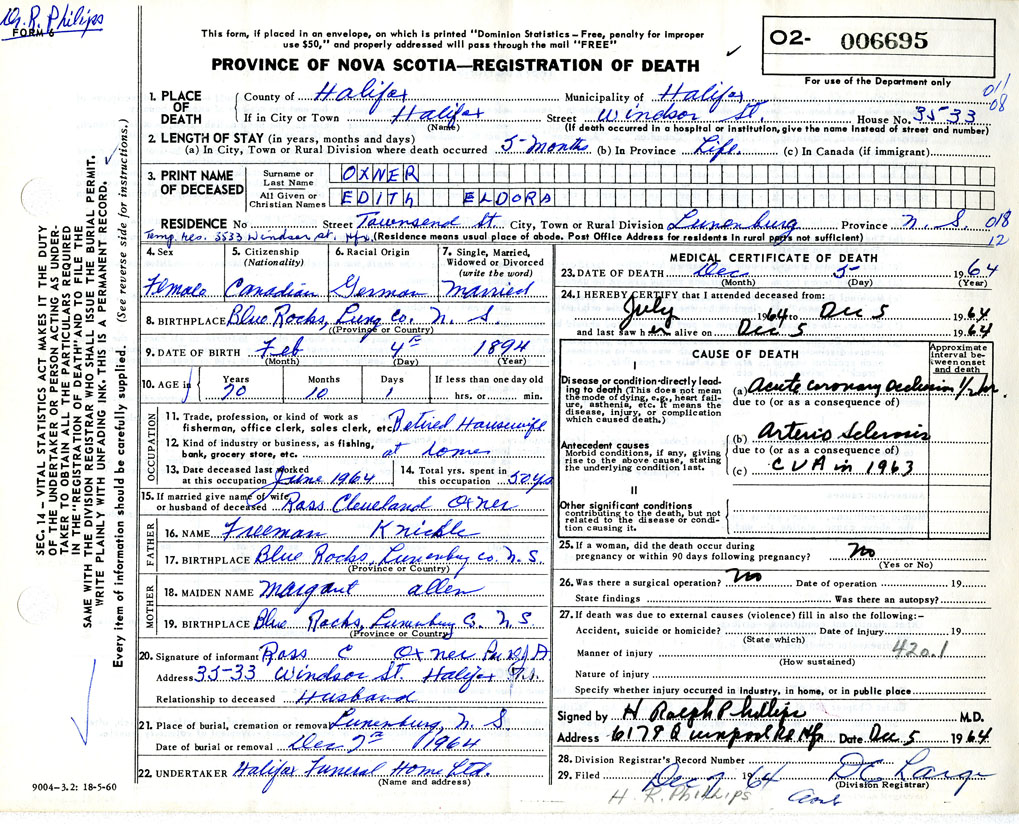 Dr. R. Philips
FORM 6
This form, if placed in an envelope, on which is printed "Dominion Statistics – Free, penalty for improper
use $50," and properly addressed will pass through the mail "FREE"
PROVINCE OF NOVA SCOTIA—REGISTRATION OF DEATH
O2- 006695
For use of the Department only
011
08
1. PLACE OF DEATH
County of Halifax Municipality of Halifax
If in City or Town Halifax Street Windsor St. House No. 35-33
(Name) (If death occurred in a hospital or institution, give the name instead of street and number)
2. LENGTH OF STAY (in years, months and days)
(a) In City, Town or Rural Division where death occurred 5-Months (b) In Province Life. (c) In Canada (if immigrant)
3. PRINT NAME OF DECEASED
Surname or Last Name OXNER
All Given or Christian Names EDITH ELDORA
RESIDENCE No. Street Townsend St. City, Town or Rural Division Lunenburg Province N. S. 018
12
Temp. res. 3533 Windsor St. Hfx. (Residence means usual place of abode. Post Office Address for residents in rural parts not sufficient)
4. Sex Female
5. Citizenship (Nationality) Canadian
6. Racial Origin German
7. Single, Married, Widowed or Divorced (write the word) Married
8. BIRTHPLACE Blue Rocks, Lung Co. N. S.
(Province or Country)
9. DATE OF BIRTH Feb 4th 1894
(Month) (Day) (Year)
10. AGE in Years 70 Months 10 Days 1 If less than one day old hrs. or min.
OCCUPATION
11. Trade, profession, or kind of work as fisherman, office clerk, sales clerk, etc. Retired Housewife
12. Kind of industry or business, as fishing, bank, grocery store, etc. at home
13. Date deceased last worked at this occupation June 1964
14. Total yrs. spent in this occupation 50 yrs
15. If married give name of wife or husband of deceased Ross Cleveland Oxner
FATHER
16. NAME Freeman Knickle
17. BIRTHPLACE Blue Rocks, Lunenburg Co. N. S.
(Province or Country)
MOTHER
18. MAIDEN NAME Margaret Allen
19. BIRTHPLACE Blue Rocks, Lunenburg Co. N S
(Province or Country)
20. Signature of informant Ross C Oxner
Address 35-33 Windsor St. Halifax N.S.
Relationship to deceased Husband
21. Place of burial, cremation or removal Lunenburg N. S
Date of burial or removal Dec 7th 1964
22. UNDERTAKER Halifax Funeral Home Ltd.
(Name and address)
MEDICAL CERTIFICATE OF DEATH
23. DATE OF DEATH Dec 5 1964
(Month) (Day) (Year)
24. I HEREBY CERTIFY that I attended deceased from:
July 1964 to Dec 5 1964
and last saw her alive on Dec 5 1964
CAUSE OF DEATH
Approximate interval between onset and death
I
Disease or condition directly leading to death (This does not mean the mode of dying, e.g., heart failure, asthenia, etc. It means the disease, injury, or complication which caused death.)
(a) Acute coronary occlusion 1/2 hr.
due to (or as a consequence of)
Antecedent causes
Morbid conditions, if any, giving rise to the above cause, stating the underlying condition last.
(b) Arterio Sclerosis
due to (or as a consequence of)
(c) CVA in 1963
II
Other significant conditions
contributing to the death, but not related to the disease or condition causing it.
25. If a woman, did the death occur during pregnancy or within 90 days following pregnancy? No
(Yes or No)
26. Was there a surgical operation? No Date of operation 19
State findings Was there an autopsy?
27. If death was due to external causes (violence) fill in also the following:–
Accident, suicide or homicide? Date of injury 19
(State which)
Manner of injury 420.1
(How sustained)
Nature of injury
Specify whether injury occurred in industry, in home, or in public place
Signed by H Ralph Phillips M.D.
Address 6178 Quinpool Rd Hfx Date Dec 5 1964
28. Division Registrar's Record Number
29. Filed Dec 7 1964
(Division Registrar)
H. R. Phillips
SEC. 14 – VITAL STATISTICS ACT MAKES IT THE DUTY
OF THE UNDERTAKER OR PERSON ACTING AS UNDER-
TAKER TO OBTAIN ALL THE PARTICULARS REQUIRED
IN THE "REGISTRATION OF DEATH" AND TO FILE THE
SAME WITH THE DIVISION REGISTRAR WHO SHALL ISSUE THE BURIAL PERMIT.
WRITE PLAINLY WITH UNFADING INK. THIS IS A PERMANENT RECORD.
Every item of information should be carefully supplied. (See reverse side for instructions.)
9004–3.2: 18-5-60